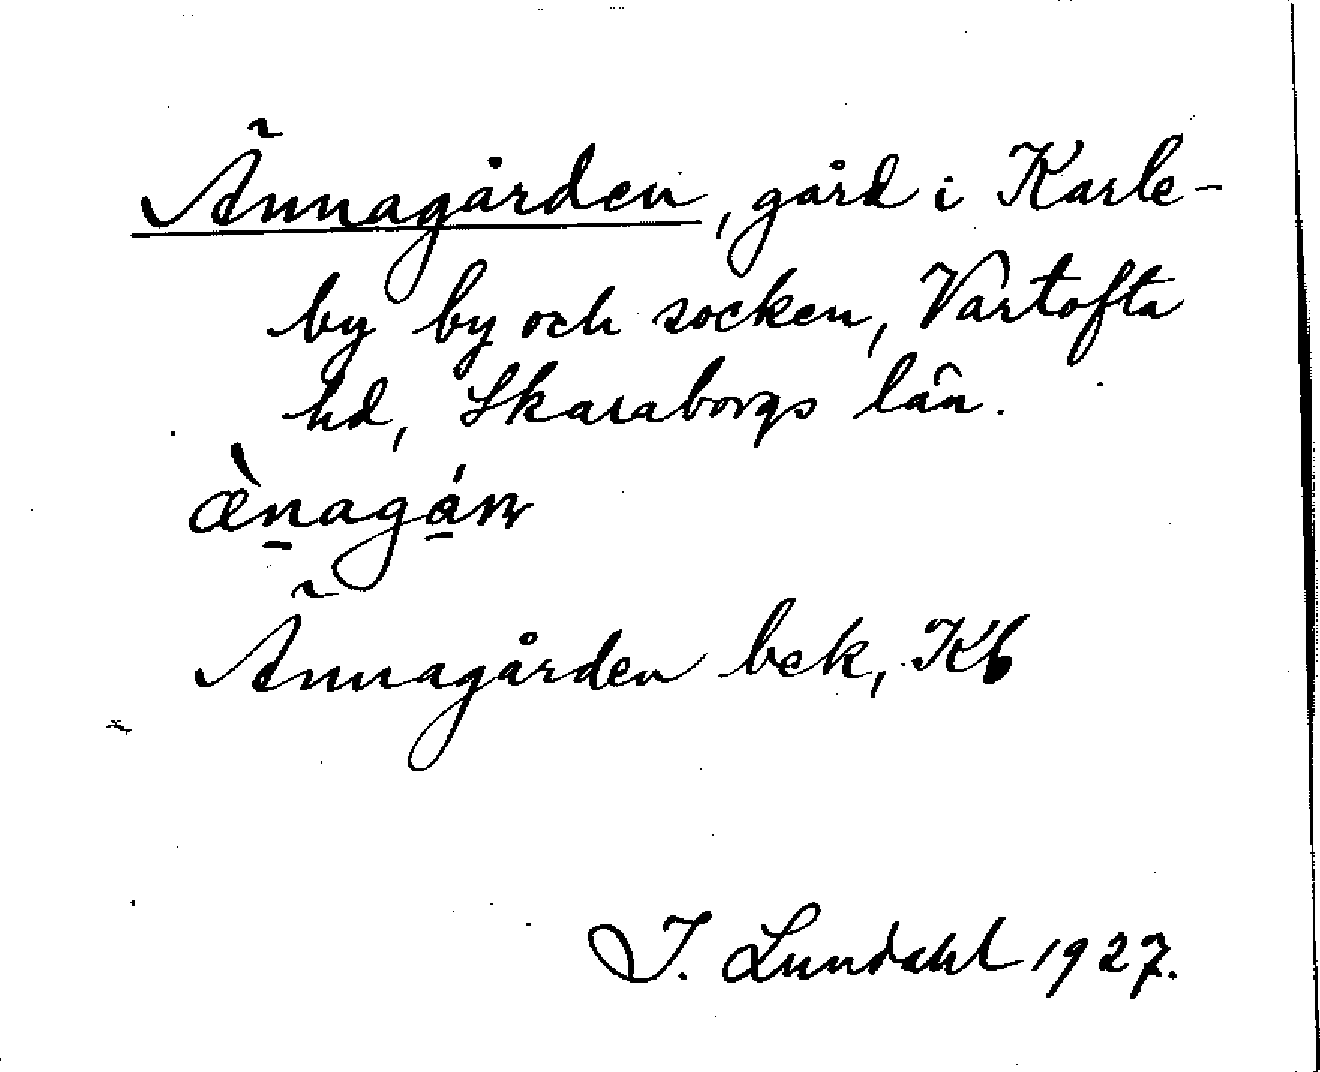 Ännagården, gård i Karle-
by by och socken, Vartofta
hd, Skaraborgs län.
Ännagården bek, Kb
I. Lundahl 1927.